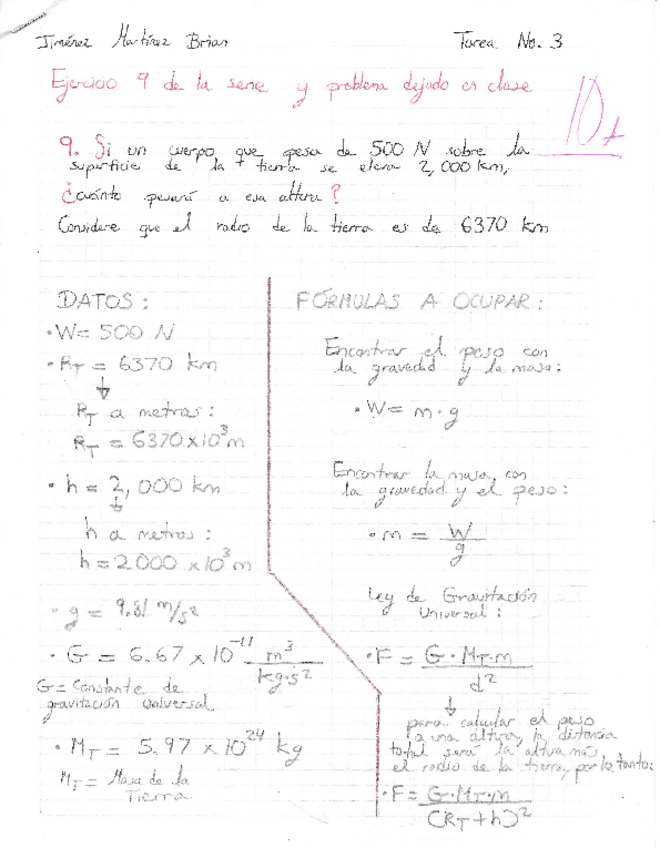 Jiménez Martínez Brian
Tarea No. 3
Ejercicio 9 de la serie y problema dejado en clase
10+
9. Si un cuerpo que pesa de 500 N sobre la
superficie de la tierra se eleva 2,000 km,
¿cuánto pesará a esa altura?
Considere que el radio de la tierra es de 6370 km
DATOS:
• W = 500 N
• R_T = 6370 km
↓
R_T a metros:
R_T = 6370 x 10³ m
• h = 2,000 km
↓
h a metros:
h = 2000 x 10³ m
• g = 9.81 m/s²
• G = 6.67 x 10⁻¹¹ m³/kg·s²
G = Constante de
gravitación universal
• M_T = 5.97 x 10²⁴ kg
M_T = Masa de la
Tierra
FÓRMULAS A OCUPAR:
Encontrar el peso con
la gravedad y la masa:
• W = m · g
Encontrar la masa con
la gravedad y el peso:
• m = W/g
Ley de Gravitación
Universal:
• F = G·M_T·m/d²
↓
para calcular el peso
a una altura, la distancia
total será la altura más
el radio de la tierra, por lo tanto:
• F = G·M_T·m/(R_T + h)²